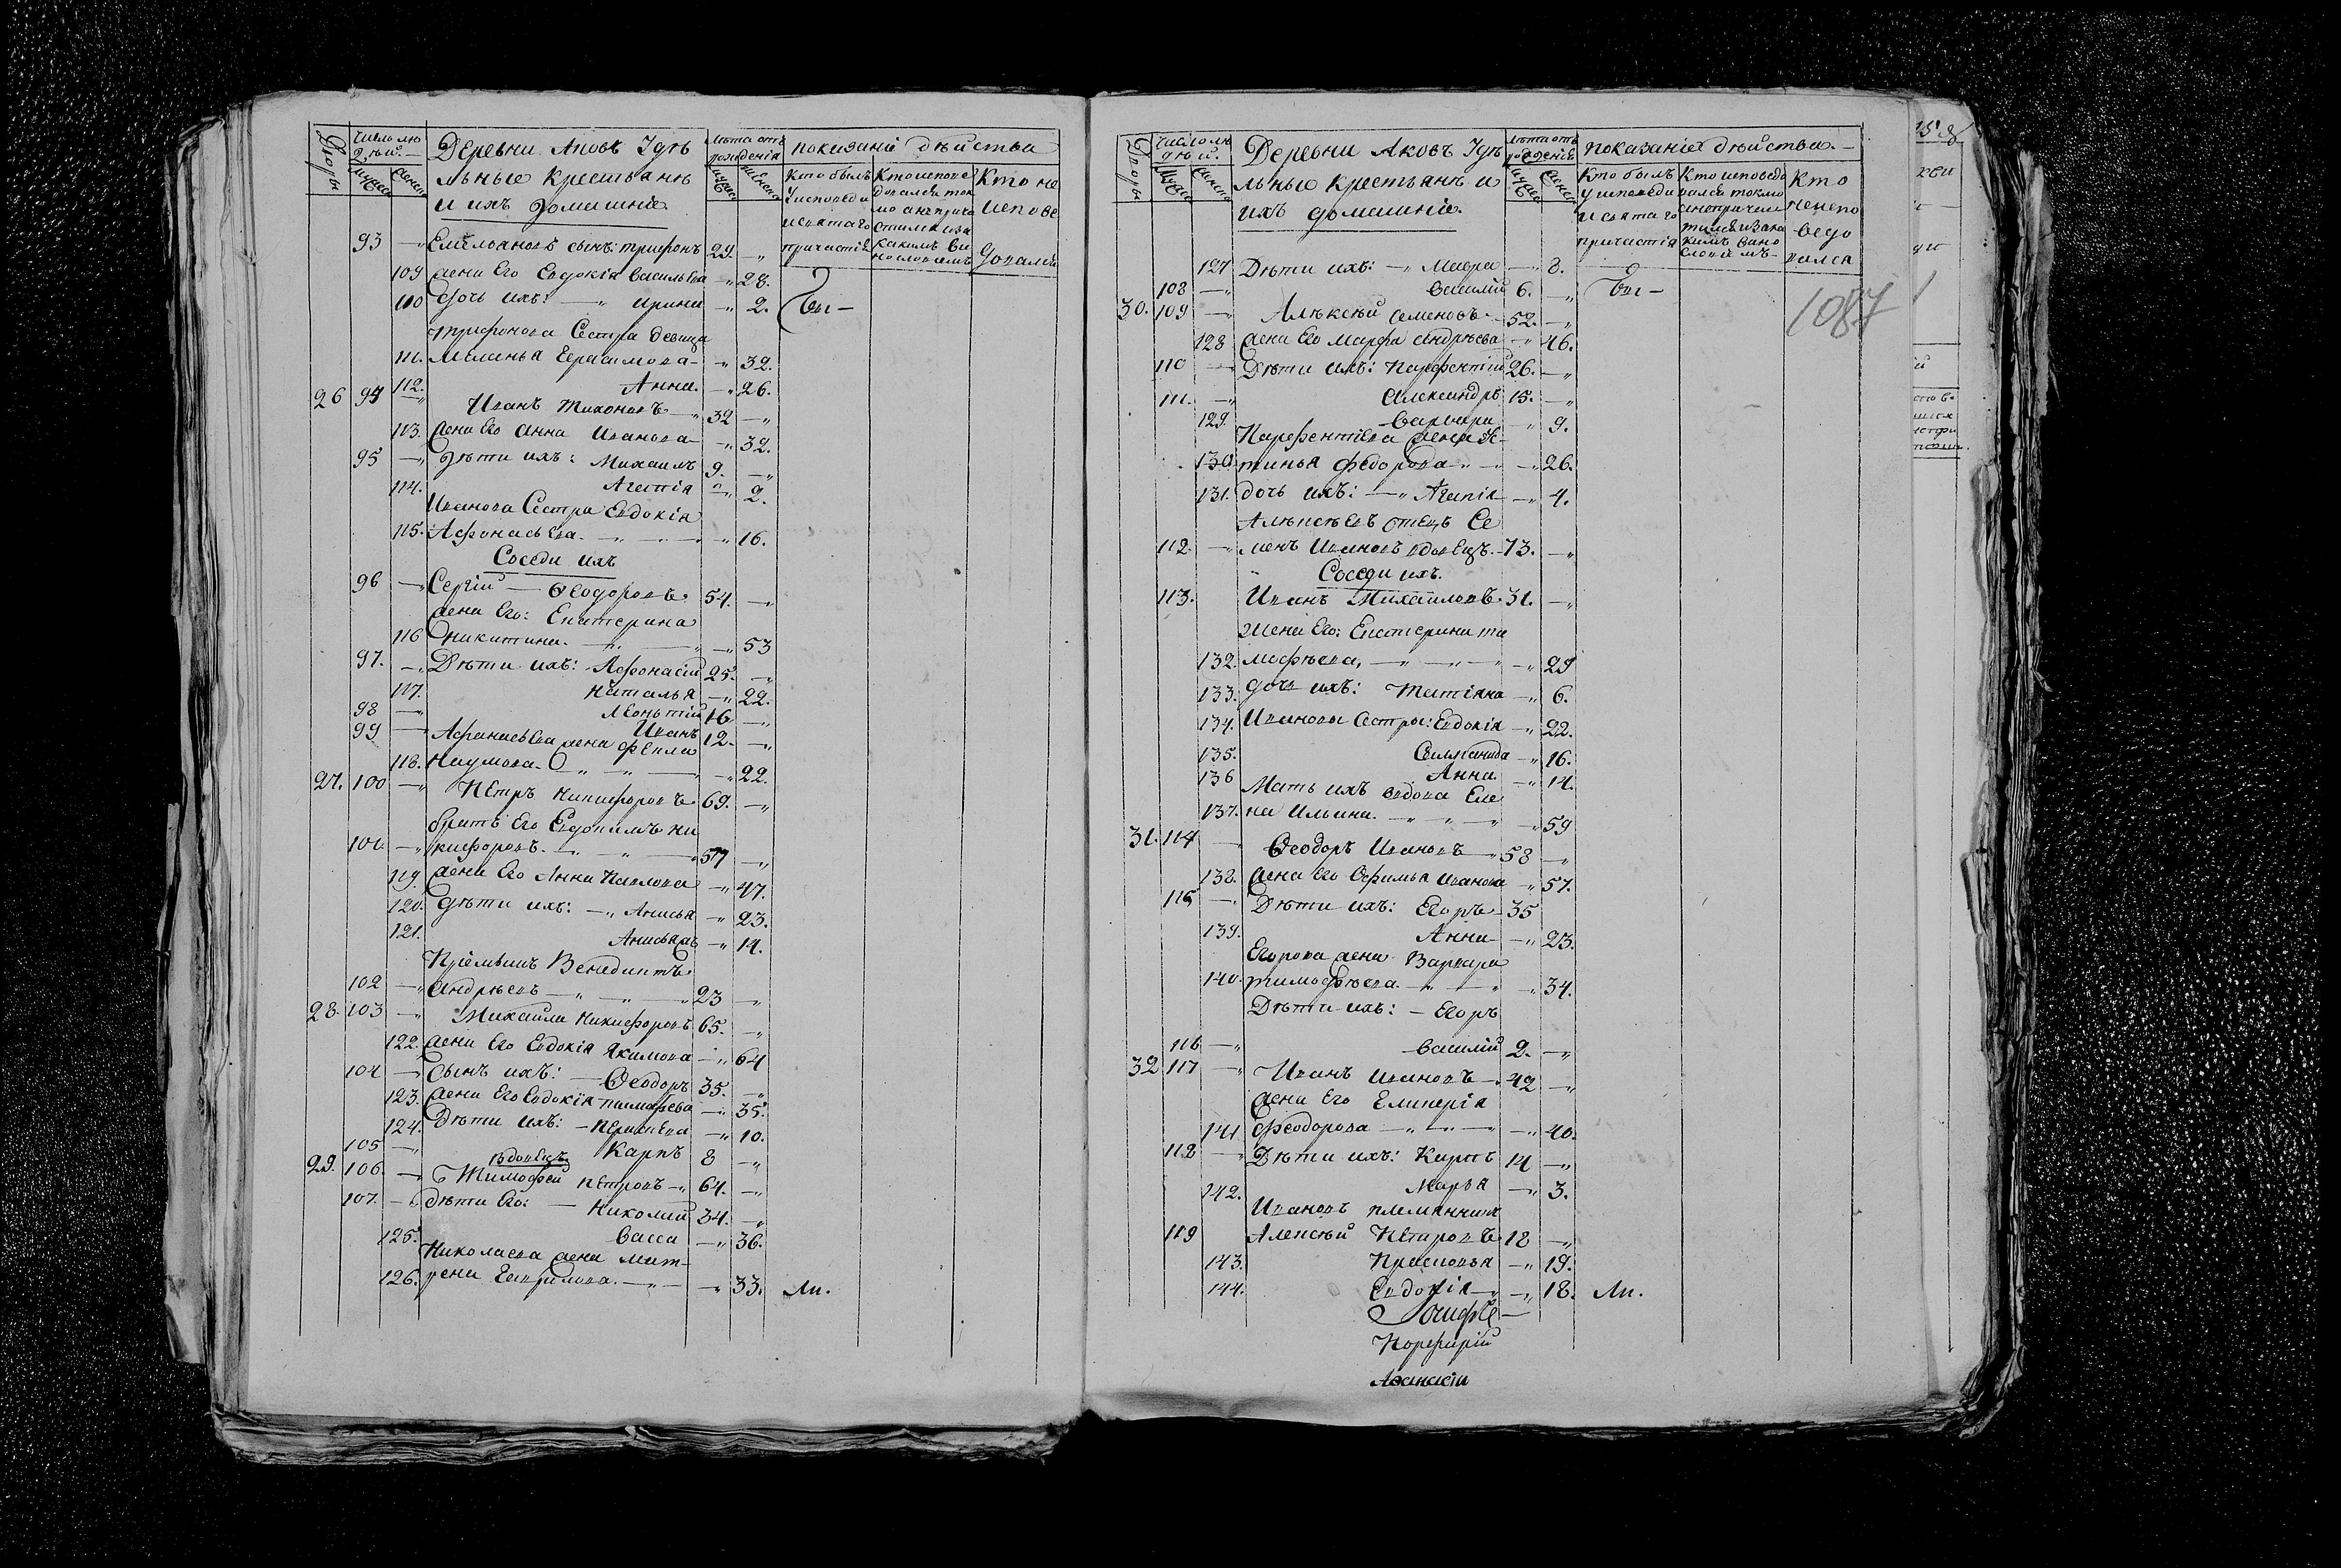 Дворы
число лю
дей.
мужеск
женск
Деревни Аковъ Удѣ
льные крестьянѣ
и ихъ домашніе.
лѣта отъ
рожденія
мужеск
женска
показаніе дѣйства
Кто былъ
у исповеди
и святаго
причастія
Кто испове
довался ток
мо а неприча
стился и за
какимъ ви
нословіемъ
Кто не
испове
довался
93 —„ Емелѣяновъ сынъ: трифонъ 29. —„
109 жена Его Евдокія васильева —„ 28.
110 дочь ихъ: —„ ирина —„ 2. бы —
трифонова Сестра девица
111. меланья Герасимова — —„ 32.
112. Анна. —„ 26.
26 94 —„ Иванъ тихоновъ —„ 32 —„
113. жена Его анна иванова —„ 32.
95 —„ дѣти ихъ: михаилъ 9. —„
114. Агапія —„ 2.
Иванова Сестра Евдокія
115. Афонасьева. —„ —„ —„ 16.
Соседи ихъ
96 —„ Сергій — Ѳеодоровъ. 54. —„
жена Его: Екатерина
116 никитина. —„ —„ —„ 53
97. —„ Дѣти ихъ: Афонасій 25. —„
117. наталья —„ 22.
98 —„ леонтій 16. —„
99 —„ Иванъ 12. —„
Афанасьева жена фекла
118. наумова. —„ —„ —„ 22.
27. 100 —„ Петръ никифоровъ 69. —„
братъ Его Евдокимъ ни
101. —„ кифоровъ. —„ —„ 57 —„
119. жена Его Анна павлова —„ 47.
120. дѣти ихъ: —„ Анисья —„ 23.
121. Анисья —„ 14.
Пріемышъ Венедиктъ
102 —„ андрѣевъ —„ —„ —„ 23 —„
28. 103 —„ Михайла никифоровъ 65. —„
122. жена Его Евдокія якимова —„ 64
104 —„ Сынъ ихъ: — Ѳеодоръ 35. —„
123. жена Его Евдокія тимофѣева —„ 35.
124. Дѣти ихъ: — —„ 10.
105 —„ Карпъ 8 —„
вдовецъ
29. 106. —„ Тимофей петровъ —„ 64. —„
107. — дѣти Его: — Николай 34. —„
125. васса —„ 36.
Николаева жена мат-
126. рена Гаврилова. —„ —„ 33. ли.
Дворы
число лю
дей.
мужеск
женск
Деревни Аковъ Удѣ
льные крестьянѣ и
ихъ домашніе.
лѣта отъ
рожденія
мужеск
женск
показаніе дѣйства —
Кто былъ
у исповеди
и святаго
причастія
Кто исповедо
вался токмо
а неприча
тился и за ка
кимъ вино
словіемъ —
Кто
неиспо
ведо
вался
1087
127 Дѣти ихъ: —„ Мавра —„ 8.
108 —„ василій 6. —„ бы —
30. 109 —„ Алѣксѣй семеновъ — 52. —„
128 жена Его марфа андрѣева —„ 46.
110 —„ Дѣти ихъ: парфентій 26. —„
111. —„ александръ 15. —„
129. варвара —„ 9.
Парфентіева жена У-
130 стинья федорова —„ —„ 26.
131. дочь ихъ: —„ Агапія —„ 4.
Алѣксѣевъ отецъ Се
112. —„ менъ Ивановъ вдовецъ. 73. —„
Соседи ихъ.
113. Иванъ Михайловъ. 31. —„
жена Его: Екатерина ти
132. мофѣева, —„ —„ —„ 29
133. дочь ихъ: татіяна —„ 6.
134. Иванова Сестра: Евдокія —„ 22.
135. —„ 16.
136 Анна —„ 14.
Мать ихъ вдова Еле
137. на Ильина. —„ —„ —„ 59
31. 114 —„ Ѳеодоръ Ивановъ —„ 58 —„
138. жена Его Ѳефимья иванова —„ 57.
115 —„ Дѣти ихъ: Егоръ — 35
139. Анна —„ 23.
Егорова жена Варвара
140. тимофѣева —„ —„ —„ 34.
Дѣти ихъ: — Егоръ
116 —„ василій 2. —„
32 117 —„ Иванъ ивановъ — 42 —„
жена Его Гликерія
141 феодорова —„ —„ —„ 40.
118 —„ Дѣти ихъ: Карпъ 14 —„
142. марья —„ 3.
Ивановъ племянникъ
119 Алексѣй Петровъ 18 —„
143. Прасковья —„ 19.
144. Евдокія —„ —„ 18. ли.
Іосифъ —
Порфирій
Аѳанасіи